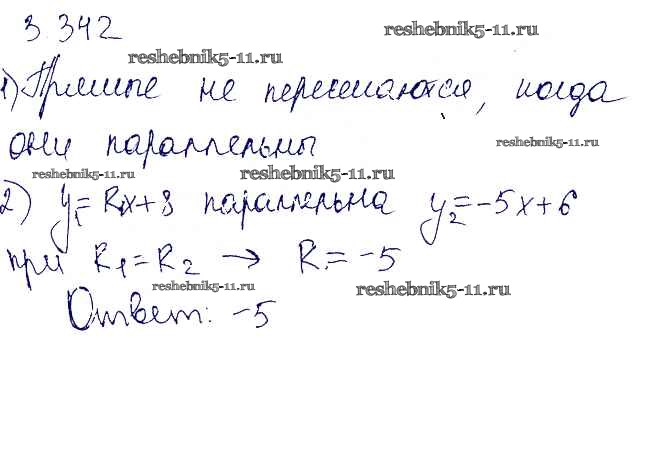 3.342
reshebnik5-11.ru
reshebnik5-11.ru
1) Прямые не пересекаются, когда
они параллельны
reshebnik5-11.ru
reshebnik5-11.ru
reshebnik5-11.ru
2) y₁=Rx+8 параллельна y₂=-5x+6
при R₁=R₂ → R=-5
reshebnik5-11.ru
reshebnik5-11.ru
Ответ: -5